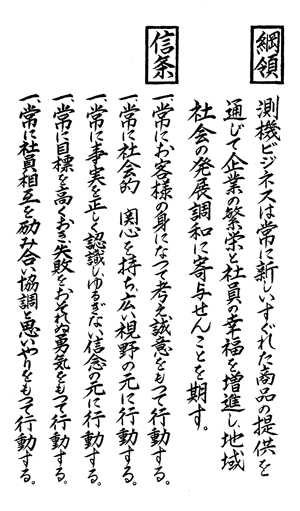 綱領
測機ビジネスは常に新しいすぐれた商品の提供を
通じて企業の繁栄と社員の幸福を増進し、地域
社会の発展調和に寄与せんことを期す。
信条
一、常にお客様の身になって考え誠意をもって行動する。
一、常に社会的関心を持ち、広い視野の元に行動する。
一、常に事実を正しく認識し、ゆるぎない信念の元に行動する。
一、常に目標を高くおき、失敗をおそれぬ勇気をもって行動する。
一、常に社員相互を励み合い協調と思いやりをもって行動する。